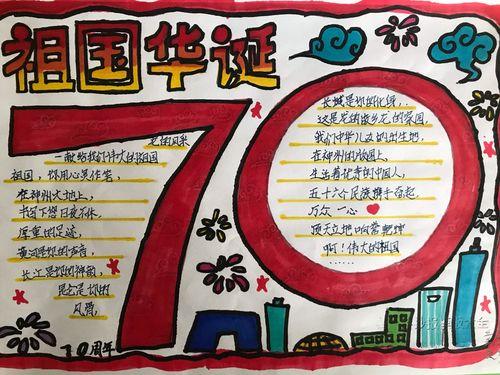 祖国华诞
70
龙的风采
—献给我们伟大的祖国
祖国,你用心灵作笔
在神州大地上,
书写下您日夜不休、
厚重的足迹
黄河是你的声音
长江是你的神韵
昆仑是你的
风骨
70周年
长城是你的化身,
这是龙的故乡龙的家园,
我们中华儿女的生地
在神州的版图上,
生活着优秀的中国人,
五十六个民族携手奋起,
万众一心
顶天立地响当乾坤
啊!伟大的祖国
……